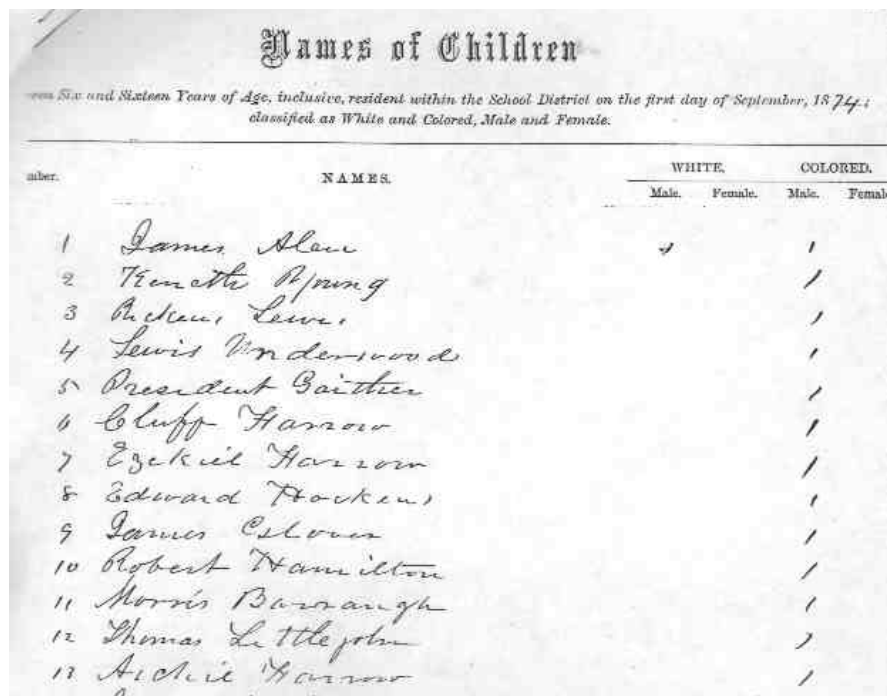 Names of Children
Six and Sixteen Years of Age, inclusive, resident within the School District on the first day of September, 1874;
classified as White and Colored, Male and Female.
NAMES. WHITE. COLORED.
Male. Female. Male. Femal
1 James Alen
2 Keneth
3 Lewis
4 Lewis Underwood
5 President Gaither
6 Cluff Harrow
7 Ezekiel Harrow
8 Edward Hockens
9 James
10 Robert Hamilton
11 Morris
12 Thomas Littlejohn
13 Archie Harrow